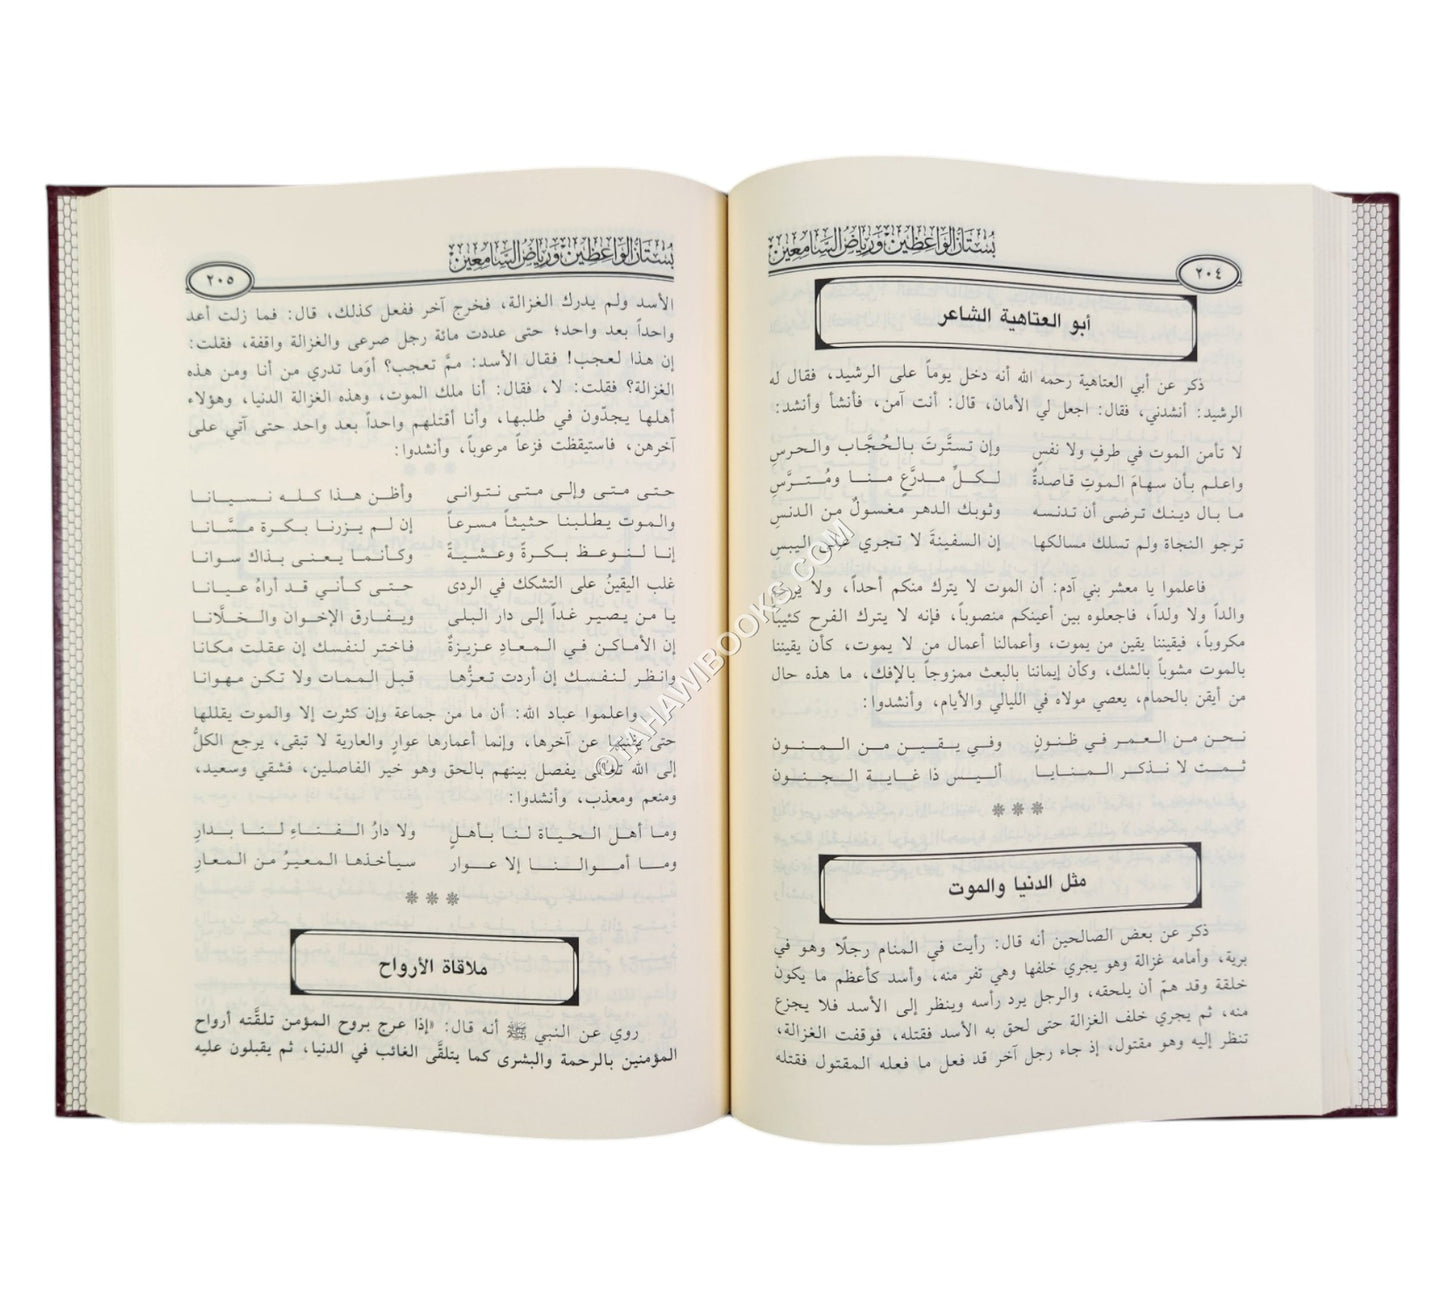 بستان الواعظين ورياض السامعين
٢٠٤
أبو العتاهية الشاعر
ذكر عن أبي العتاهية رحمه الله أنه دخل يوماً على الرشيد، فقال له
الرشيد: أنشدني، فقال: اجعل لي الأمان، قال: أنت آمن، فأنشأ وأنشد:
لا تأمن الموت في طرفٍ ولا نفسٍ وإن تستَّرتَ بالحُجَّاب والحرسِ
واعلم بأن سهامَ الموتِ قاصدةٌ لكلِّ مدرَّعٍ منا ومُتَرَّسِ
ما بال دينك ترضى أن تدنسه وثوبك الدهر مغسولٌ من الدنسِ
ترجو النجاة ولم تسلك مسالكها إن السفينةَ لا تجري على اليبسِ
فاعلموا يا معشر بني آدم: أن الموت لا يترك منكم أحداً، ولا يرحم
والداً ولا ولداً، فاجعلوه بين أعينكم منصوباً، فإنه لا يترك الفرح كئيباً
مكروباً، فيقيننا يقين من يموت، وأعمالنا أعمال من لا يموت، كأن يقيننا
بالموت مشوباً بالشك، وكأن إيماننا بالبعث ممزوجاً بالإفك، ما هذه حال
من أيقن بالحمام، يعصي مولاه في الليالي والأيام، وأنشدوا:
نحن من العمر في ظنونٍ وفي يقين من المنون
ثمت لا نذكر المنايا أليس ذا غاية الجنون
❊ ❊ ❊
مثل الدنيا والموت
ذكر عن بعض الصالحين أنه قال: رأيت في المنام رجلًا وهو في
برية، وأمامه غزالة وهو يجري خلفها وهي تفر منه، وأسد كأعظم ما يكون
خلقة وقد همّ أن يلحقه، والرجل يرد رأسه وينظر إلى الأسد فلا يجزع
منه، ثم يجري خلف الغزالة حتى لحق به الأسد فقتله، فوقفت الغزالة،
تنظر إليه وهو مقتول، إذ جاء رجل آخر قد فعل ما فعله المقتول فقتله
بستان الواعظين ورياض السامعين
٢٠٥
الأسد ولم يدرك الغزالة، فخرج آخر ففعل كذلك، قال: فما زلت أعد
واحداً بعد واحد؛ حتى عددت مائة رجل صرعى والغزالة واقفة، فقلت:
إن هذا لعجب! فقال الأسد: ممَّ تعجب؟ أوَما تدري من أنا ومن هذه
الغزالة؟ فقلت: لا، فقال: أنا ملك الموت، وهذه الغزالة الدنيا، وهؤلاء
أهلها يجدّون في طلبها، وأنا أقتلهم واحداً بعد واحد حتى آتي على
آخرهن، فاستيقظت فزعاً مرعوباً، وأنشدوا:
حتى متى وإلى متى نتوانى وأظن هذا كله نسيانا
والموت يطلبنا حثيثاً مسرعاً إن لم يزرنا بكرة مسَّانا
إنا لنوعظ بكرةً وعشيةً وكأنما يعنى بذاك سوانا
غلب اليقينُ على التشكك في الردى حتى كأني قد أراهُ عيانا
يا من يصير غداً إلى دار البلى ويفارق الإخوان والخلَّانا
إن الأماكن في المعادِ عزيزةٌ فاختر لنفسك إن عقلت مكانا
وانظر لنفسك إن أردت تعزُّها قبل الممات ولا تكن مهوانا
واعلموا عباد الله: أن ما من جماعة وإن كثرت إلا والموت يقللها
حتى يفنيها عن آخرها، وإنما أعمارها عوارٍ والعارية لا تبقى، يرجع الكلُّ
إلى الله تعالى يفصل بينهم بالحق وهو خير الفاصلين، فشقي وسعيد،
ومنعم ومعذب، وأنشدوا:
وما أهل الحياة لنا بأهلٍ ولا دارُ الفناءِ لنا بدارِ
وما أموالنا إلا عوار سيأخذها المعيرُ من المعارِ
❊ ❊ ❊
ملاقاة الأرواح
روي عن النبي ﷺ أنه قال: «إذا عرج بروح المؤمن تلقَّته أرواح
المؤمنين بالرحمة والبشرى كما يتلقَّى الغائب في الدنيا، ثم يقبلون عليه
©TAHAWIBOOKS.COM